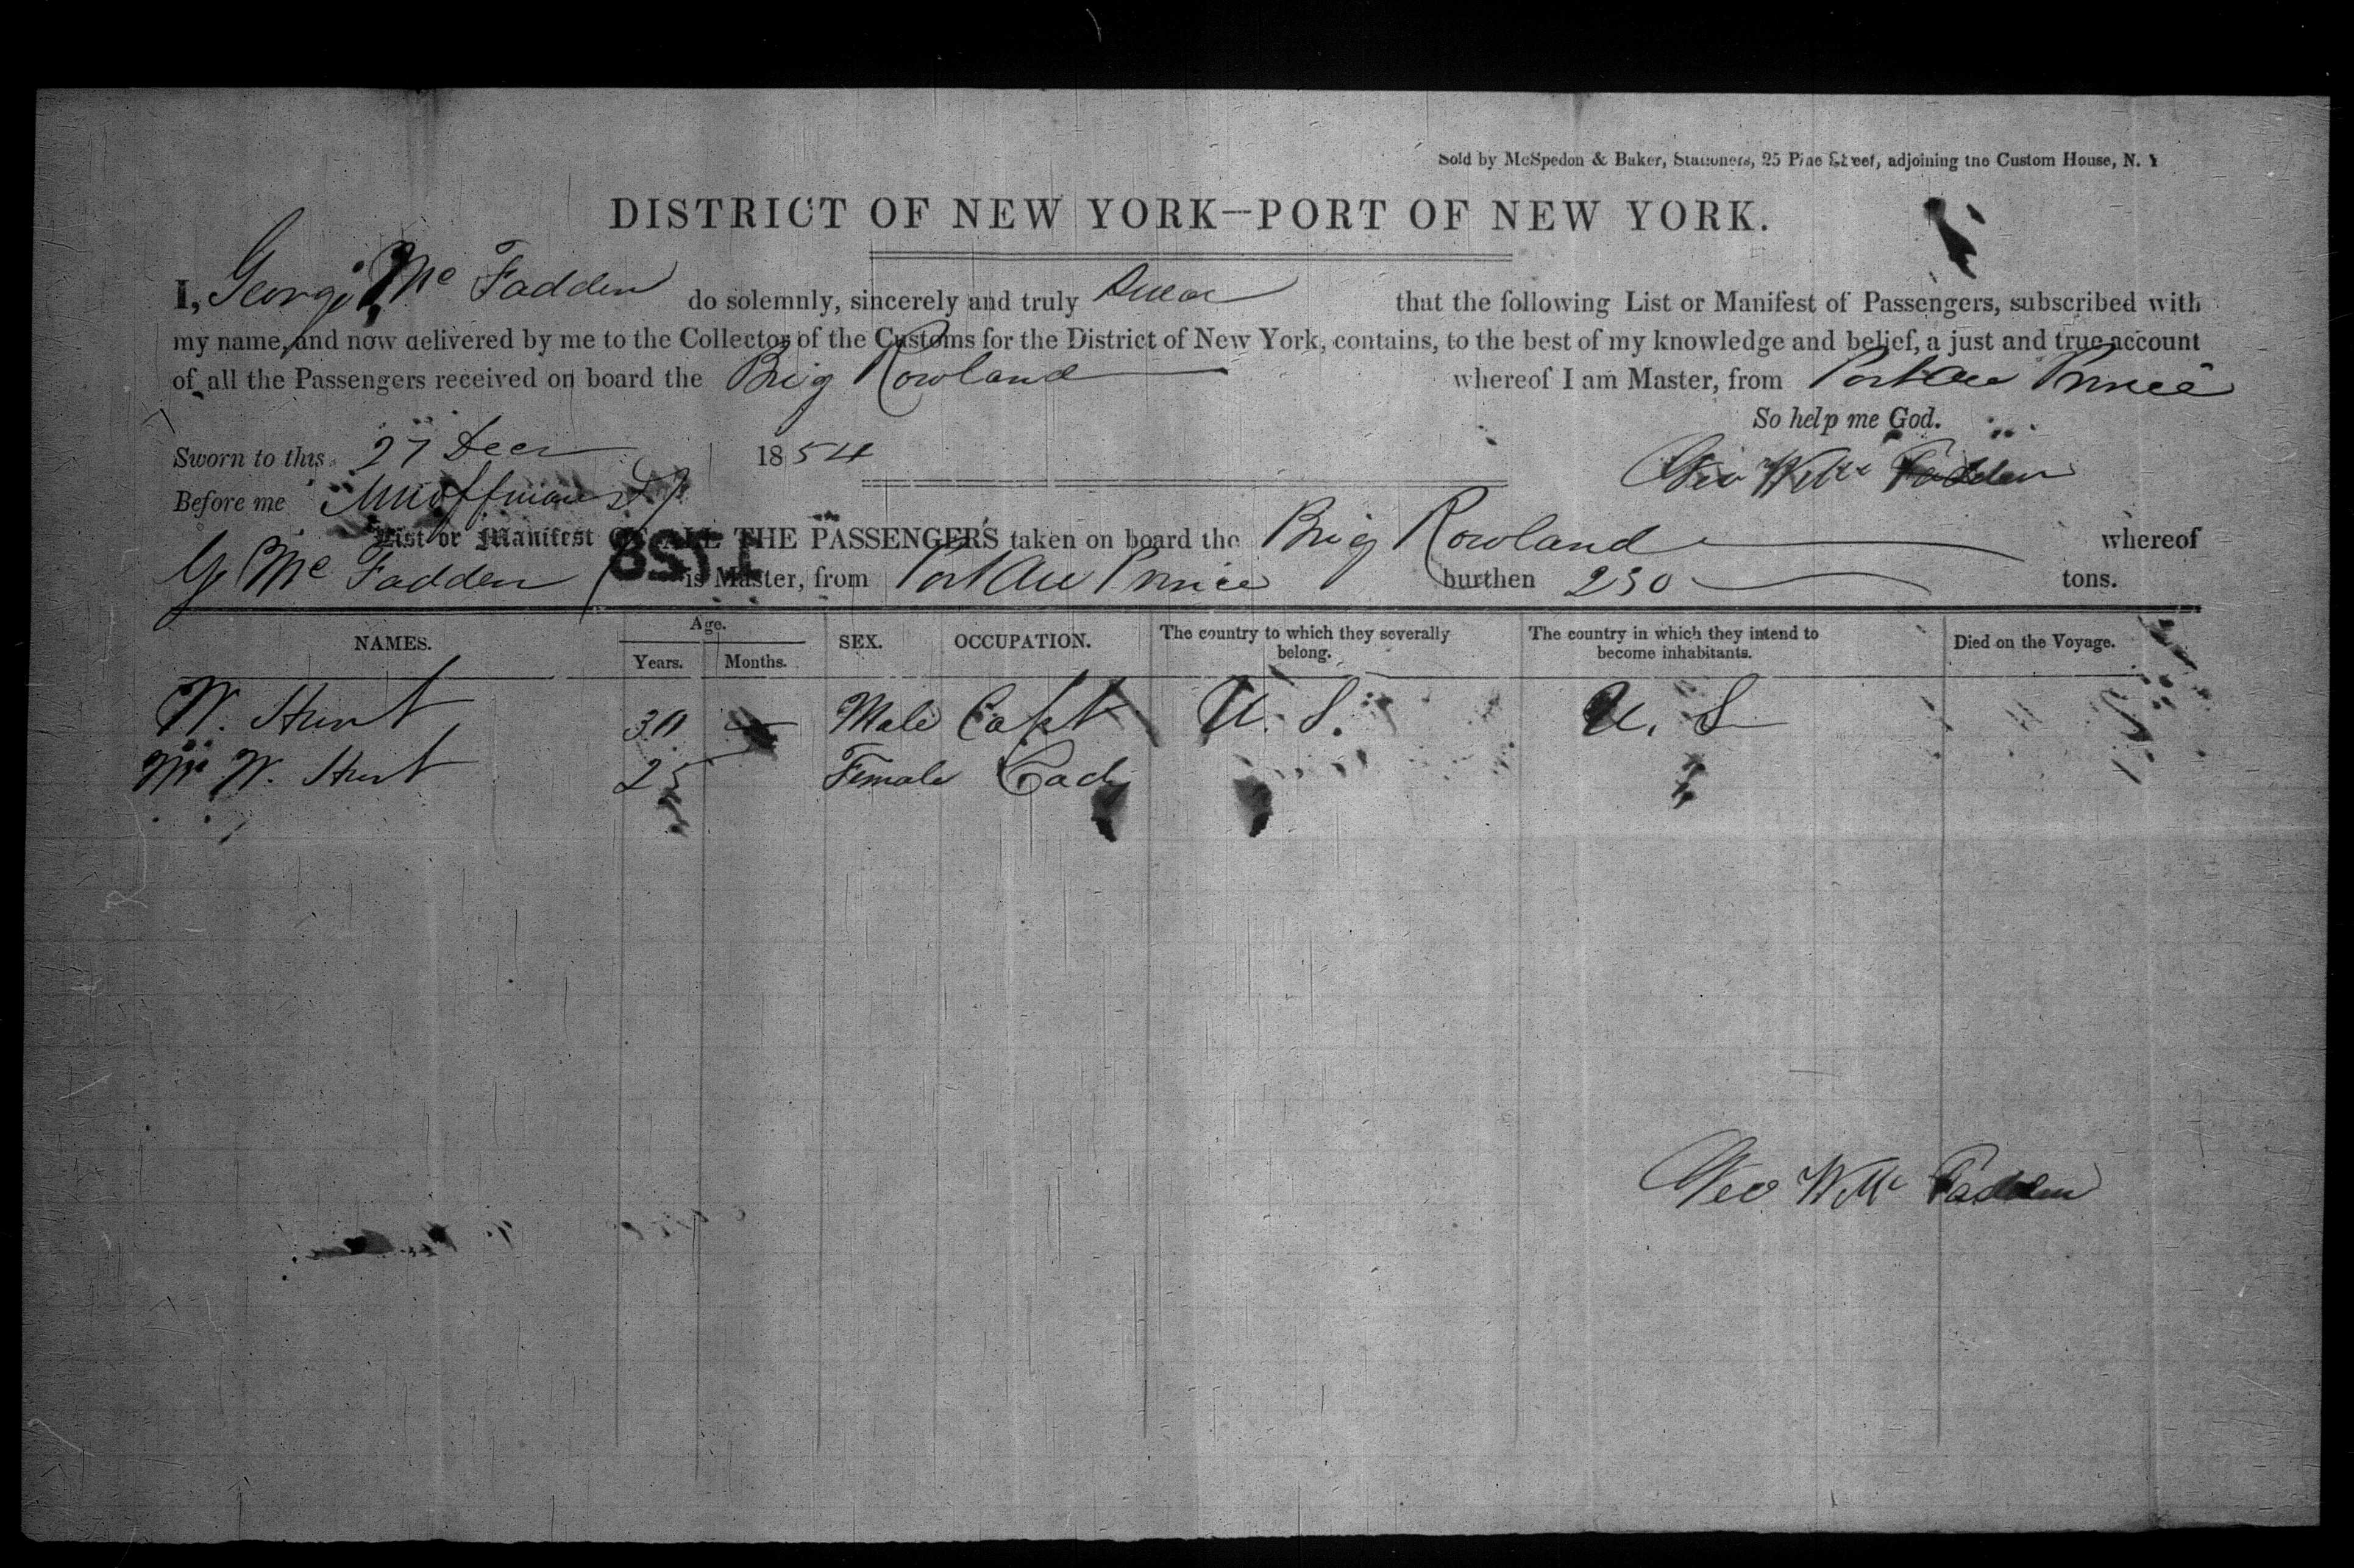 Sold by McSpedon & Baker, Stationers, 25 Pine Street, adjoining the Custom House, N. Y
DISTRICT OF NEW YORK—PORT OF NEW YORK.
I, George Mc Fadden do solemnly, sincerely and truly swear that the following List or Manifest of Passengers, subscribed with
my name, and now delivered by me to the Collector of the Customs for the District of New York, contains, to the best of my knowledge and belief, a just and true account
of all the Passengers received on board the Brig Rowland whereof I am Master, from Port Au Prince
So help me God.
Sworn to this 27 Decr 1854
Geo W Mc Fadden
Before me
List or Manifest OF ALL THE PASSENGERS taken on board the Brig Rowland whereof
1258
G Mc Fadden is Master, from Port Au Prince burthen 230 tons.
NAMES. Age. Years. Months. SEX. OCCUPATION. The country to which they severally belong. The country in which they intend to become inhabitants. Died on the Voyage.
W. Hunt 30 Male Capt U. S. U. S
Mrs W. Hunt 25 Female
Geo W Mc Fadden